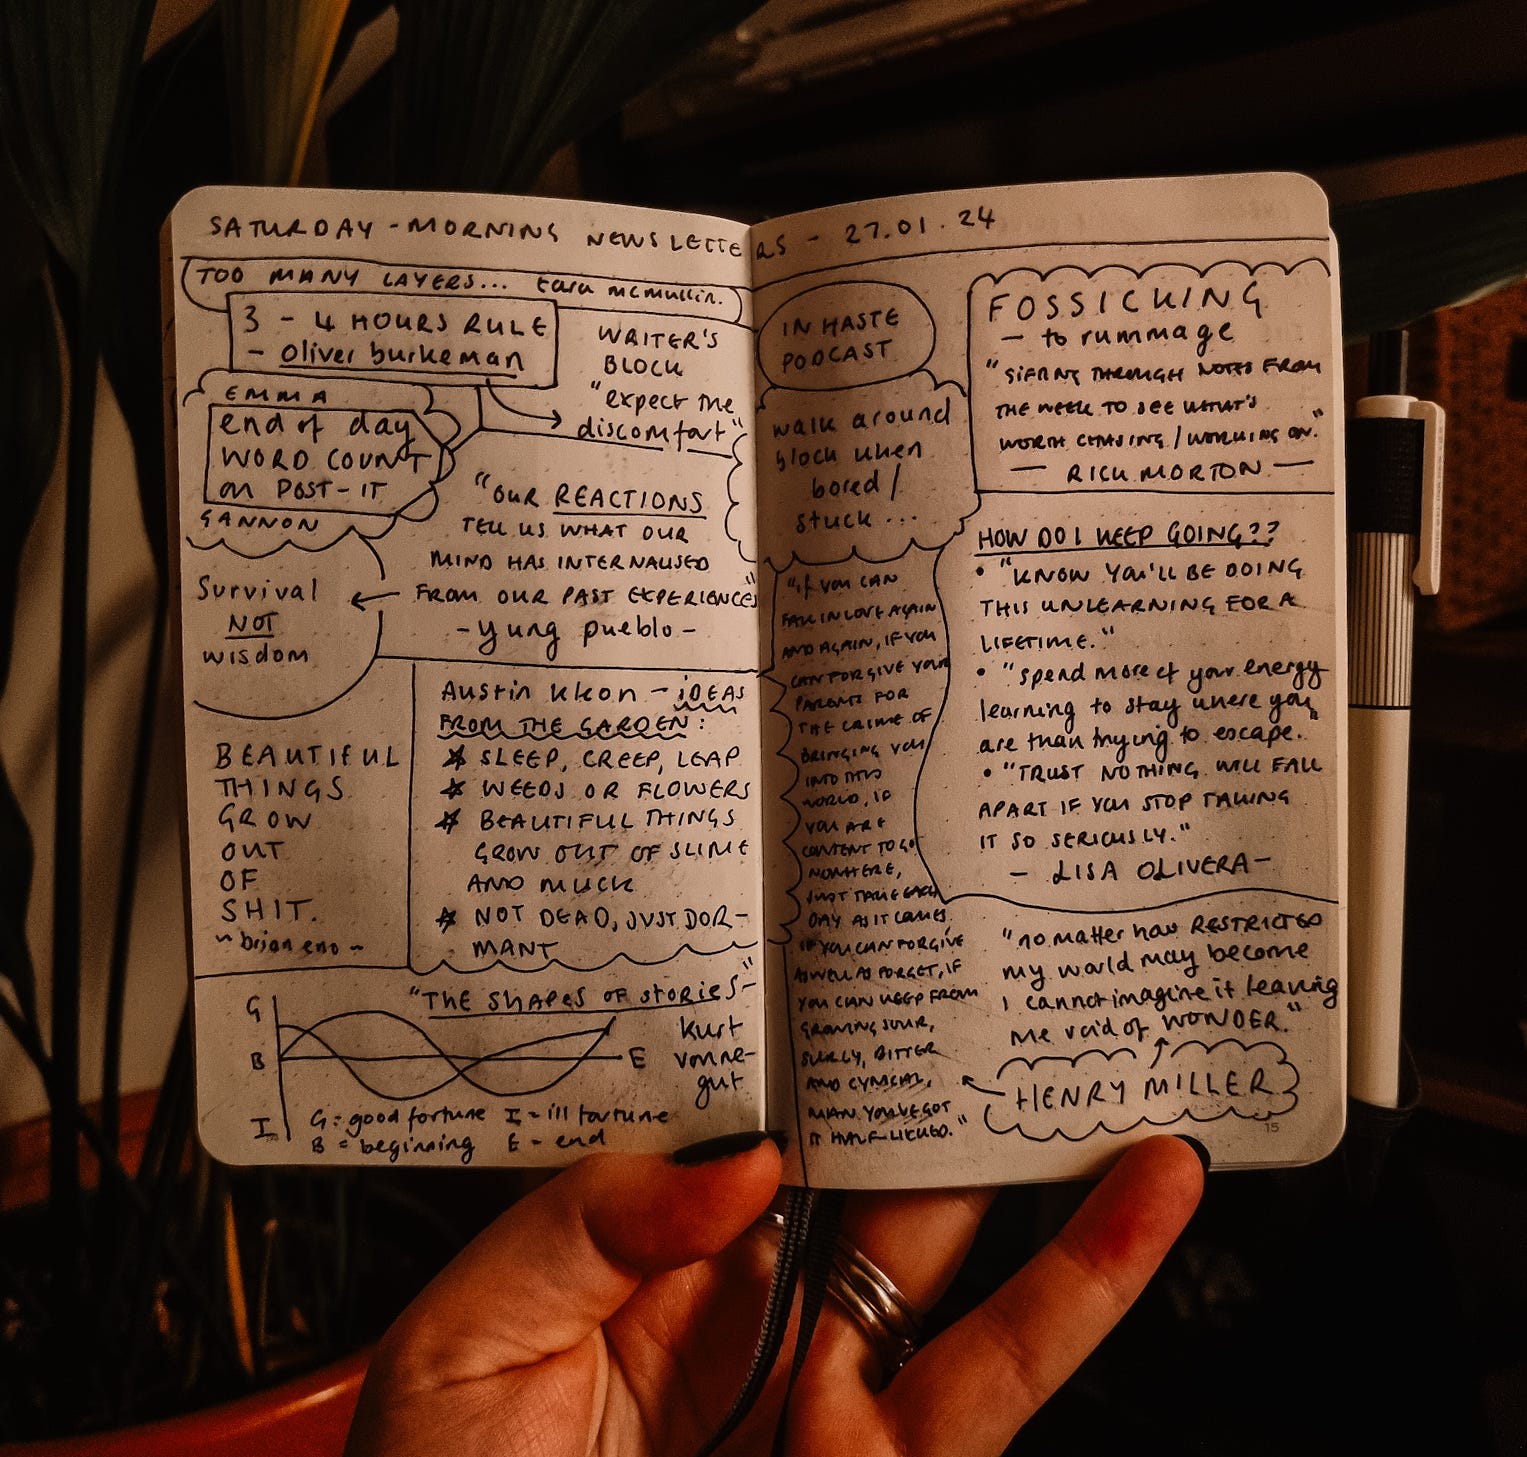 SATURDAY - MORNING NEWSLETTERS - 27.01.24
TOO MANY LAYERS... tara mcmullin.
3 - 4 HOURS RULE
- Oliver burkeman
WRITER'S
BLOCK
"expect the
discomfort"
EMMA
end of day
WORD COUNT
on POST-IT
GANNON
"OUR REACTIONS
TELL US WHAT OUR
MIND HAS INTERNALISED
FROM OUR PAST EXPERIENCES"
- yung pueblo -
Survival
NOT
wisdom
BEAUTIFUL
THINGS
GROW
OUT
OF
SHIT.
~ brian eno ~
Austin kleon - iDEAS
FROM THE GARDEN:
* SLEEP, CREEP, LEAP
* WEEDS OR FLOWERS
* BEAUTIFUL THINGS
GROW OUT OF SLIME
AND MUCK
* NOT DEAD, JUST DOR-
MANT
"THE SHAPES OF STORIES"-
kurt
vonne-
gut
G
B
I
E
G = good fortune I = ill fortune
B = beginning E - end
IN HASTE
PODCAST
walk around
block when
bored /
stuck ...
"if you can
FALL IN LOVE AGAIN
AND AGAIN, IF YOU
CAN FORGIVE YOUR
PARENTS FOR
THE CRIME OF
BRINGING YOU
INTO THIS
WORLD, IF
YOU ARE
CONTENT TO GO
NOWHERE,
JUST TAKE EACH
DAY AS IT COMES
IF YOU CAN FORGIVE
AS WELL AS FORGET, IF
YOU CAN KEEP FROM
GROWING SOUR,
SURLY, BITTER
AND CYNICAL,
MAN YOU'VE GOT
IT HALF-LICKED."
FOSSICKING
- to rummage
"SIFTING THROUGH NOTES FROM
THE WEEK TO SEE WHAT'S
WORTH CHASING / WORKING ON."
- RICK MORTON -
HOW DO I KEEP GOING??
• "KNOW YOU'LL BE DOING
THIS UNLEARNING FOR A
LIFETIME."
• "spend more of your energy
learning to stay where you
are than trying to escape."
• "TRUST NOTHING WILL FALL
APART IF YOU STOP TAKING
IT SO SERIOUSLY."
- LISA OLIVERA -
"no matter how RESTRICTED
my world may become
I cannot imagine it leaving
me void of WONDER."
HENRY MILLER
15